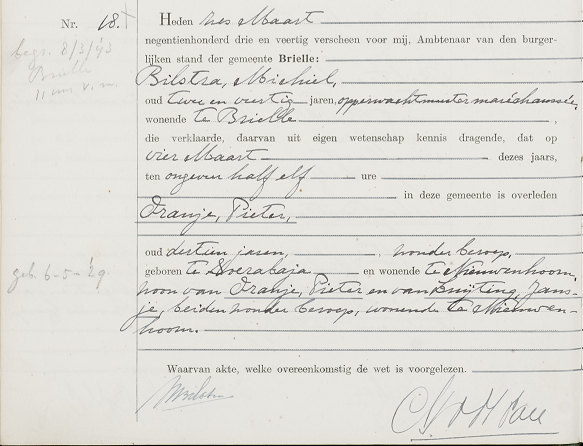 Nr. 18.
Heden zes Maart
negentienhonderd drie en veertig verscheen voor mij, Ambtenaar van den burger-
lijken stand der gemeente Brielle:
Bilstra, Michiel,
oud twee en veertig jaren, opperwachtmeester maréchaussée,
wonende te Brielle
die verklaarde, daarvan uit eigen wetenschap kennis dragende, dat op
vier Maart dezes jaars,
ten ongeveer half elf ure
in deze gemeente is overleden
Oranje, Pieter,
oud dertien jaren, zonder beroep,
geboren te Soerabaja en wonende te Nieuwenhoorn,
zoon van Oranje, Pieter en van Luijting, Jans-
je, beiden zonder beroep, wonende te Nieuwen-
hoorn.
Waarvan akte, welke overeenkomstig de wet is voorgelezen.
begr. 8/3/43
Brielle
11 uur v.m.
geb. 6-5-'29
MBilstra